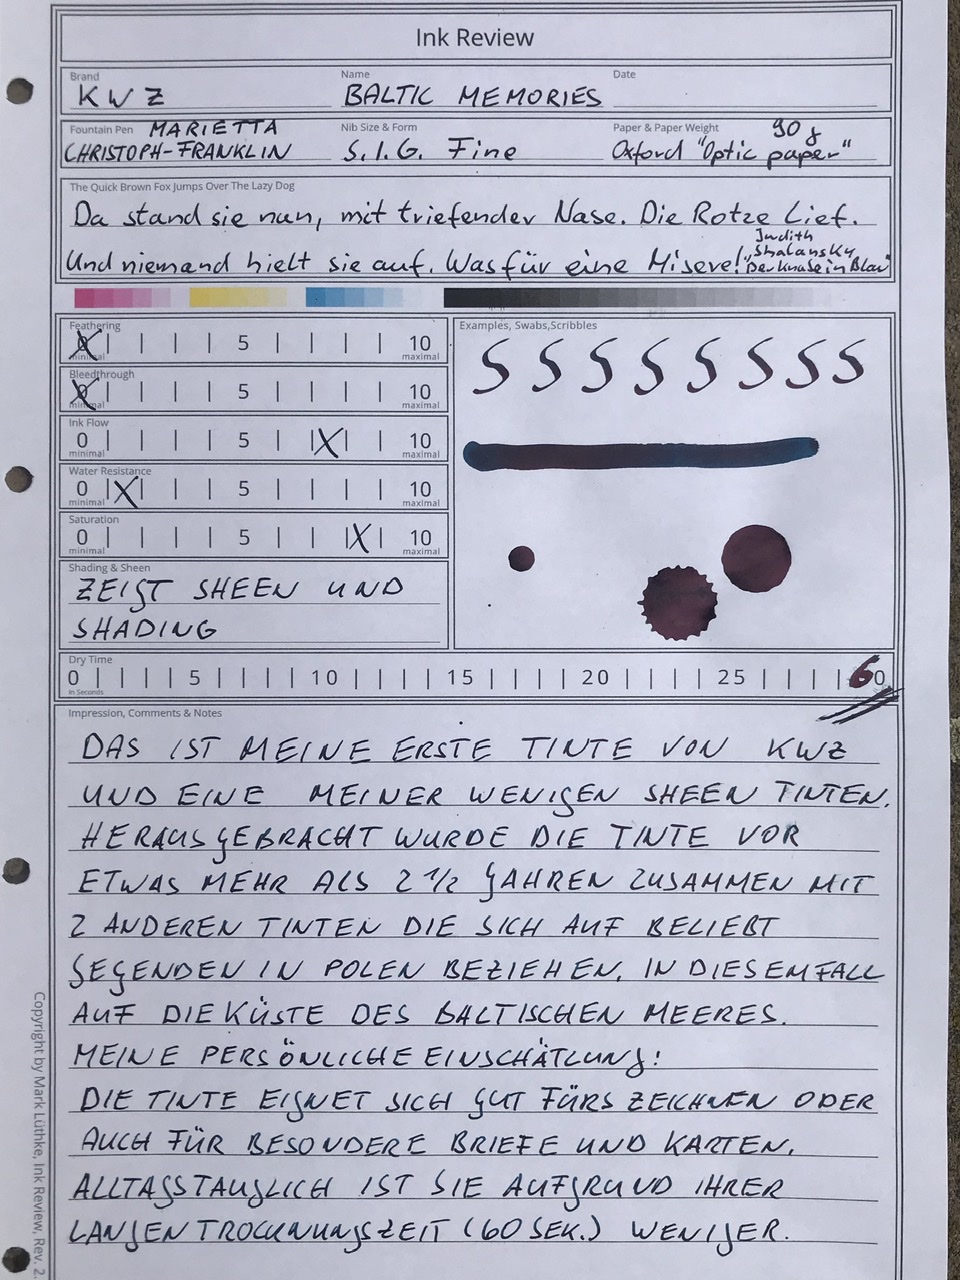 Ink Review
Brand Name Date
KWZ BALTIC MEMORIES
Fountain Pen Nib Size & Form Paper & Paper Weight
MARIETTA 90 g
CHRISTOPH-FRANKLIN S.I.G. Fine Oxford "Optic paper"
The Quick Brown Fox Jumps Over The Lazy Dog
Da stand sie nun, mit triefender Nase. Die Rotze Lief.
Und niemand hielt sie auf. Was für eine Misere!
Judith
Shalansky
Feathering Examples, Swabs,Scribbles
0 5 10
minimal maximal
S S S S S S S S
Bleedthrough
0 5 10
minimal maximal
Ink Flow
0 5 10
minimal maximal
Water Resistance
0 5 10
minimal maximal
Saturation
0 5 10
minimal maximal
Shading & Sheen
ZEIGT SHEEN UND
SHADING
Dry Time
0 5 10 15 20 25 60
In Seconds
Impression, Comments & Notes
DAS IST MEINE ERSTE TINTE VON KWZ
UND EINE MEINER WENIGEN SHEEN TINTEN.
HERAUSGEBRACHT WURDE DIE TINTE VOR
ETWAS MEHR ALS 2 1/2 JAHREN ZUSAMMEN MIT
2 ANDEREN TINTEN DIE SICH AUF BELIEBT
GEGENDEN IN POLEN BEZIEHEN. IN DIESEM FALL
AUF DIE KÜSTE DES BALTISCHEN MEERES.
MEINE PERSÖNLICHE EINSCHÄTZUNG:
DIE TINTE EIGNET SICH GUT FÜRS ZEICHNEN ODER
AUCH FÜR BESONDERE BRIEFE UND KARTEN.
ALLTAGSTAUGLICH IST SIE AUFGRUND IHRER
LANGEN TROCKNUNGSZEIT (60 SEK.) WENIGER.
Copyright by Mark Lüthke, Ink Review, Rev. 2.